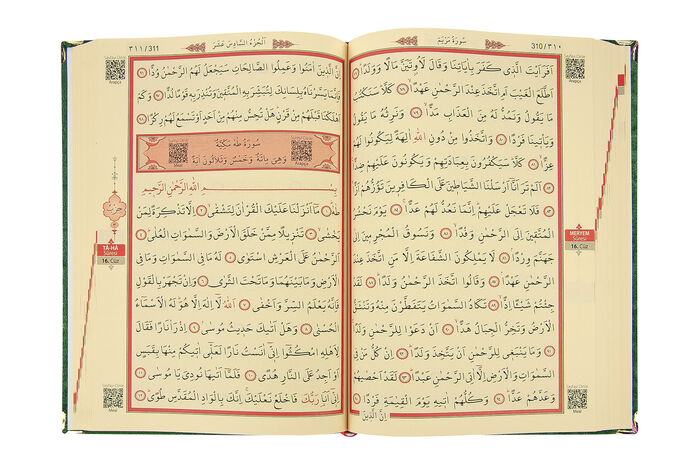 310/٣١٠
سُورَةُ مَرْيَمَ
اَفَرَاَيْتَ الَّذ۪ي كَفَرَ بِاٰيَاتِنَا وَقَالَ لَاُو۫تَيَنَّ مَالًا وَوَلَدًاۜ ﴿٧٧﴾
اَطَّلَعَ الْغَيْبَ اَمِ اتَّخَذَ عِنْدَ الرَّحْمٰنِ عَهْدًاۙ ﴿٧٨﴾ كَلَّاۜ سَنَكْتُبُ
مَا يَقُولُ وَنَمُدُّ لَهُ مِنَ الْعَذَابِ مَدًّاۙ ﴿٧٩﴾ وَنَرِثُهُ مَا يَقُولُ
وَيَأْت۪ينَا فَرْدًا ﴿٨٠﴾ وَاتَّخَذُوا مِنْ دُونِ اللّٰهِ اٰلِهَةً لِيَكُونُوا لَهُمْ
عِزًّاۙ ﴿٨١﴾ كَلَّاۜ سَيَكْفُرُونَ بِعِبَادَتِهِمْ وَيَكُونُونَ عَلَيْهِمْ ضِدًّا۟
﴿٨٢﴾ اَلَمْ تَرَ اَنَّٓا اَرْسَلْنَا الشَّيَاط۪ينَ عَلَى الْكَافِر۪ينَ تَؤُزُّهُمْ اَزًّاۙ
﴿٨٣﴾ فَلَا تَعْجَلْ عَلَيْهِمْۜ اِنَّمَا نَعُدُّ لَهُمْ عَدًّاۚ ﴿٨٤﴾ يَوْمَ نَحْشُرُ
الْمُتَّق۪ينَ اِلَى الرَّحْمٰنِ وَفْدًاۙ ﴿٨٥﴾ وَنَسُوقُ الْمُجْرِم۪ينَ اِلٰى
جَهَنَّمَ وِرْدًاۢ ﴿٨٦﴾ لَا يَمْلِكُونَ الشَّفَاعَةَ اِلَّا مَنِ اتَّخَذَ عِنْدَ
الرَّحْمٰنِ عَهْدًاۢ ﴿٨٧﴾ وَقَالُوا اتَّخَذَ الرَّحْمٰنُ وَلَدًاۜ ﴿٨٨﴾ لَقَدْ
جِئْتُمْ شَيْـًٔا اِدًّاۙ ﴿٨٩﴾ تَكَادُ السَّمٰوَاتُ يَتَفَطَّرْنَ مِنْهُ وَتَنْشَقُّ
الْاَرْضُ وَتَخِرُّ الْجِبَالُ هَدًّاۙ ﴿٩٠﴾ اَنْ دَعَوْا لِلرَّحْمٰنِ وَلَدًاۚ
﴿٩١﴾ وَمَا يَنْبَغ۪ي لِلرَّحْمٰنِ اَنْ يَتَّخِذَ وَلَدًاۜ ﴿٩٢﴾ اِنْ كُلُّ مَنْ فِي
السَّمٰوَاتِ وَالْاَرْضِ اِلَّٓا اٰتِي الرَّحْمٰنِ عَبْدًاۜ ﴿٩٣﴾ لَقَدْ اَحْصٰيهُمْ
وَعَدَّهُمْ عَدًّاۜ ﴿٩٤﴾ وَكُلُّهُمْ اٰت۪يهِ يَوْمَ الْقِيٰمَةِ فَرْدًا ﴿٩٥﴾
اِنَّ الَّذ۪ينَ
Arapça
MERYEM
Sûresi
16. Cüz
Meal
٣١١/311
اَلْجُزْءُ السَّادِسَ عَشَرَ
اِنَّ الَّذ۪ينَ اٰمَنُوا وَعَمِلُوا الصَّالِحَاتِ سَيَجْعَلُ لَهُمُ الرَّحْمٰنُ وُدًّا ﴿٩٦﴾
فَاِنَّمَا يَسَّرْنَاهُ بِلِسَانِكَ لِتُبَشِّرَ بِهِ الْمُتَّق۪ينَ وَتُنْذِرَ بِهِ قَوْمًا لُدًّا ﴿٩٧﴾ وَكَمْ
اَهْلَكْنَا قَبْلَهُمْ مِنْ قَرْنٍۜ هَلْ تُحِسُّ مِنْهُمْ مِنْ اَحَدٍ اَوْ تَسْمَعُ لَهُمْ رِكْزًا ﴿٩٨﴾
سُورَةُ طٰهٰ مَكِّيَّةٌ
وَهِيَ مِائَةٌ وَخَمْسٌ وَثَلَاثُونَ اٰيَةً
بِسْمِ اللّٰهِ الرَّحْمٰنِ الرَّح۪يمِ
طٰهٰۜ ﴿١﴾ مَٓا اَنْزَلْنَا عَلَيْكَ الْقُرْاٰنَ لِتَشْقٰىۙ ﴿٢﴾ اِلَّا تَذْكِرَةً لِمَنْ
يَخْشٰىۙ ﴿٣﴾ تَنْز۪يلًا مِمَّنْ خَلَقَ الْاَرْضَ وَالسَّمٰوَاتِ الْعُلٰىۜ ﴿٤﴾
اَلرَّحْمٰنُ عَلَى الْعَرْشِ اسْتَوٰى ﴿٥﴾ لَهُ مَا فِي السَّمٰوَاتِ وَمَا فِي
الْاَرْضِ وَمَا بَيْنَهُمَا وَمَا تَحْتَ الثَّرٰى ﴿٦﴾ وَاِنْ تَجْهَرْ بِالْقَوْلِ
فَاِنَّهُ يَعْلَمُ السِّرَّ وَاَخْفٰى ﴿٧﴾ اَللّٰهُ لَٓا اِلٰهَ اِلَّا هُوَۜ لَهُ الْاَسْمَٓاءُ
الْحُسْنٰى ﴿٨﴾ وَهَلْ اَتٰيكَ حَد۪يثُ مُوسٰىۢ ﴿٩﴾ اِذْ رَاٰ نَارًا فَقَالَ
لِاَهْلِهِ امْكُثُٓوا اِنّ۪ٓي اٰنَسْتُ نَارًا لَعَلّ۪ٓي اٰت۪يكُمْ مِنْهَا بِقَبَسٍ
اَوْ اَجِدُ عَلَى النَّارِ هُدًى ﴿١٠﴾ فَلَمَّٓا اَتٰيهَا نُودِيَ يَا مُوسٰىۜ ﴿١١﴾
اِنّ۪ٓي اَنَا۬ رَبُّكَ فَاخْلَعْ نَعْلَيْكَۚ اِنَّكَ بِالْوَادِ الْمُقَدَّسِ طُوًىۜ ﴿١٢﴾
Arapça
حزب
TÂ-HÂ
Sûresi
16. Cüz
Meal